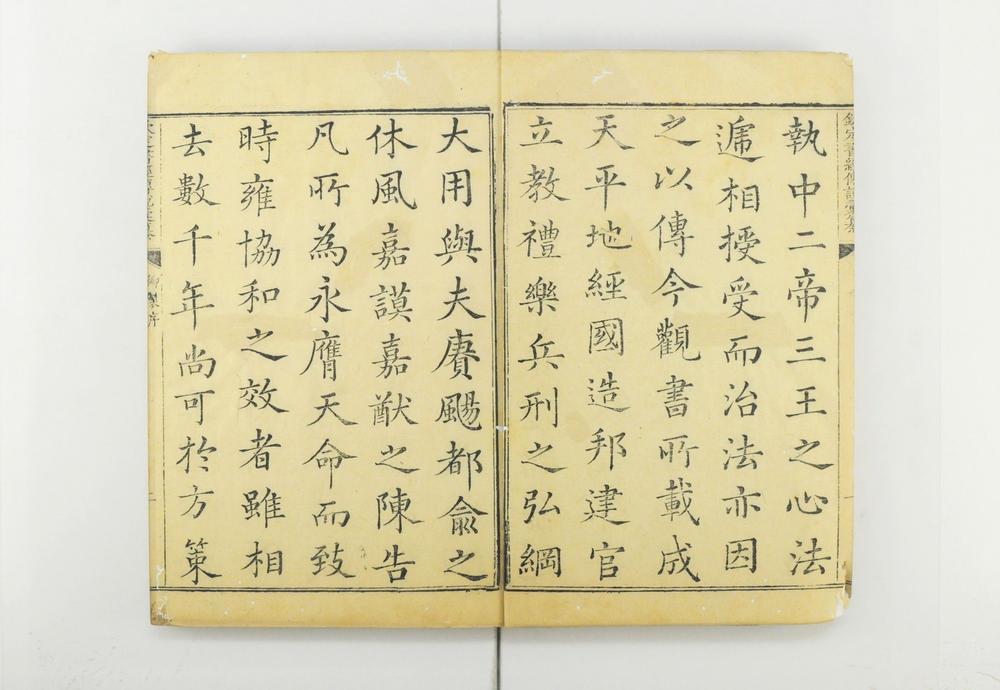 欽定書經傳說彙纂
執中二帝三王之心法
遞相授受而治法亦因
之以傳今觀書所載成
天平地經國造邦建官
立教禮樂兵刑之弘綱
大用與夫賡颺都俞之
休風嘉謨嘉猷之陳告
凡所為永膺天命而致
時雍協和之效者雖相
去數千年尚可於方策
御製序